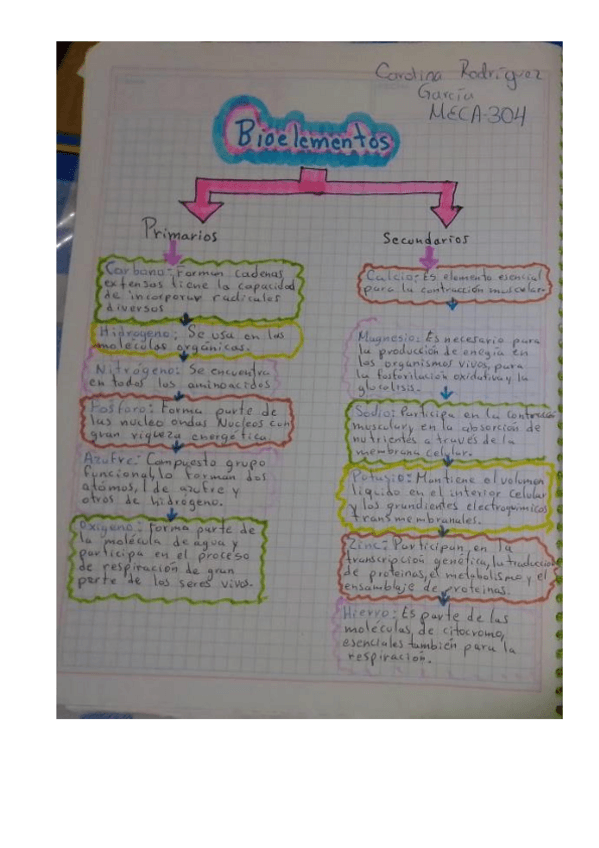 Carolina Rodríguez
García
MECA-304
Bioelementos
Primarios
Carbono: Forman cadenas
extensas tiene la capacidad
de incorporar radicales
diversos
Hidrogeno: Se usa en las
moléculas orgánicas.
Nitrógeno: Se encuentra
en todos los aminoacidos
Fosforo: Forma parte de
las nucleo ondas Nucleos con
gran riqueza energética
Azufre: Compuesto grupo
funcional lo forman dos
atómos, 1 de azufre y
otros de hidrogeno.
Oxigeno: Forma parte de
la molécula de agua y
participa en el proceso
de respiración de gran
parte de los seres vivos.
Secundarios
Calcio: Es elemento esencial
para la contracción muscular.
Magnesio: Es necesario para
la producción de enegía en
los organismos vivos, para
la fosforilación oxidativa y la
glocolisis.
Sodio: Participa en la contracción
muscular y en la absorción de
nutrientes a través de la
membrana celular.
Potasio: Mantiene el volumen
liquido en el interior celular
y los grandientes electroquimicos
transmembranales.
Zinc: Participan en la
transcripción genética, la traducción
de proteinas, el metabolismo y el
ensamblaje de proteinas.
Hierro: Es parte de las
moléculas de citocromo,
esenciales también para la
respiración.